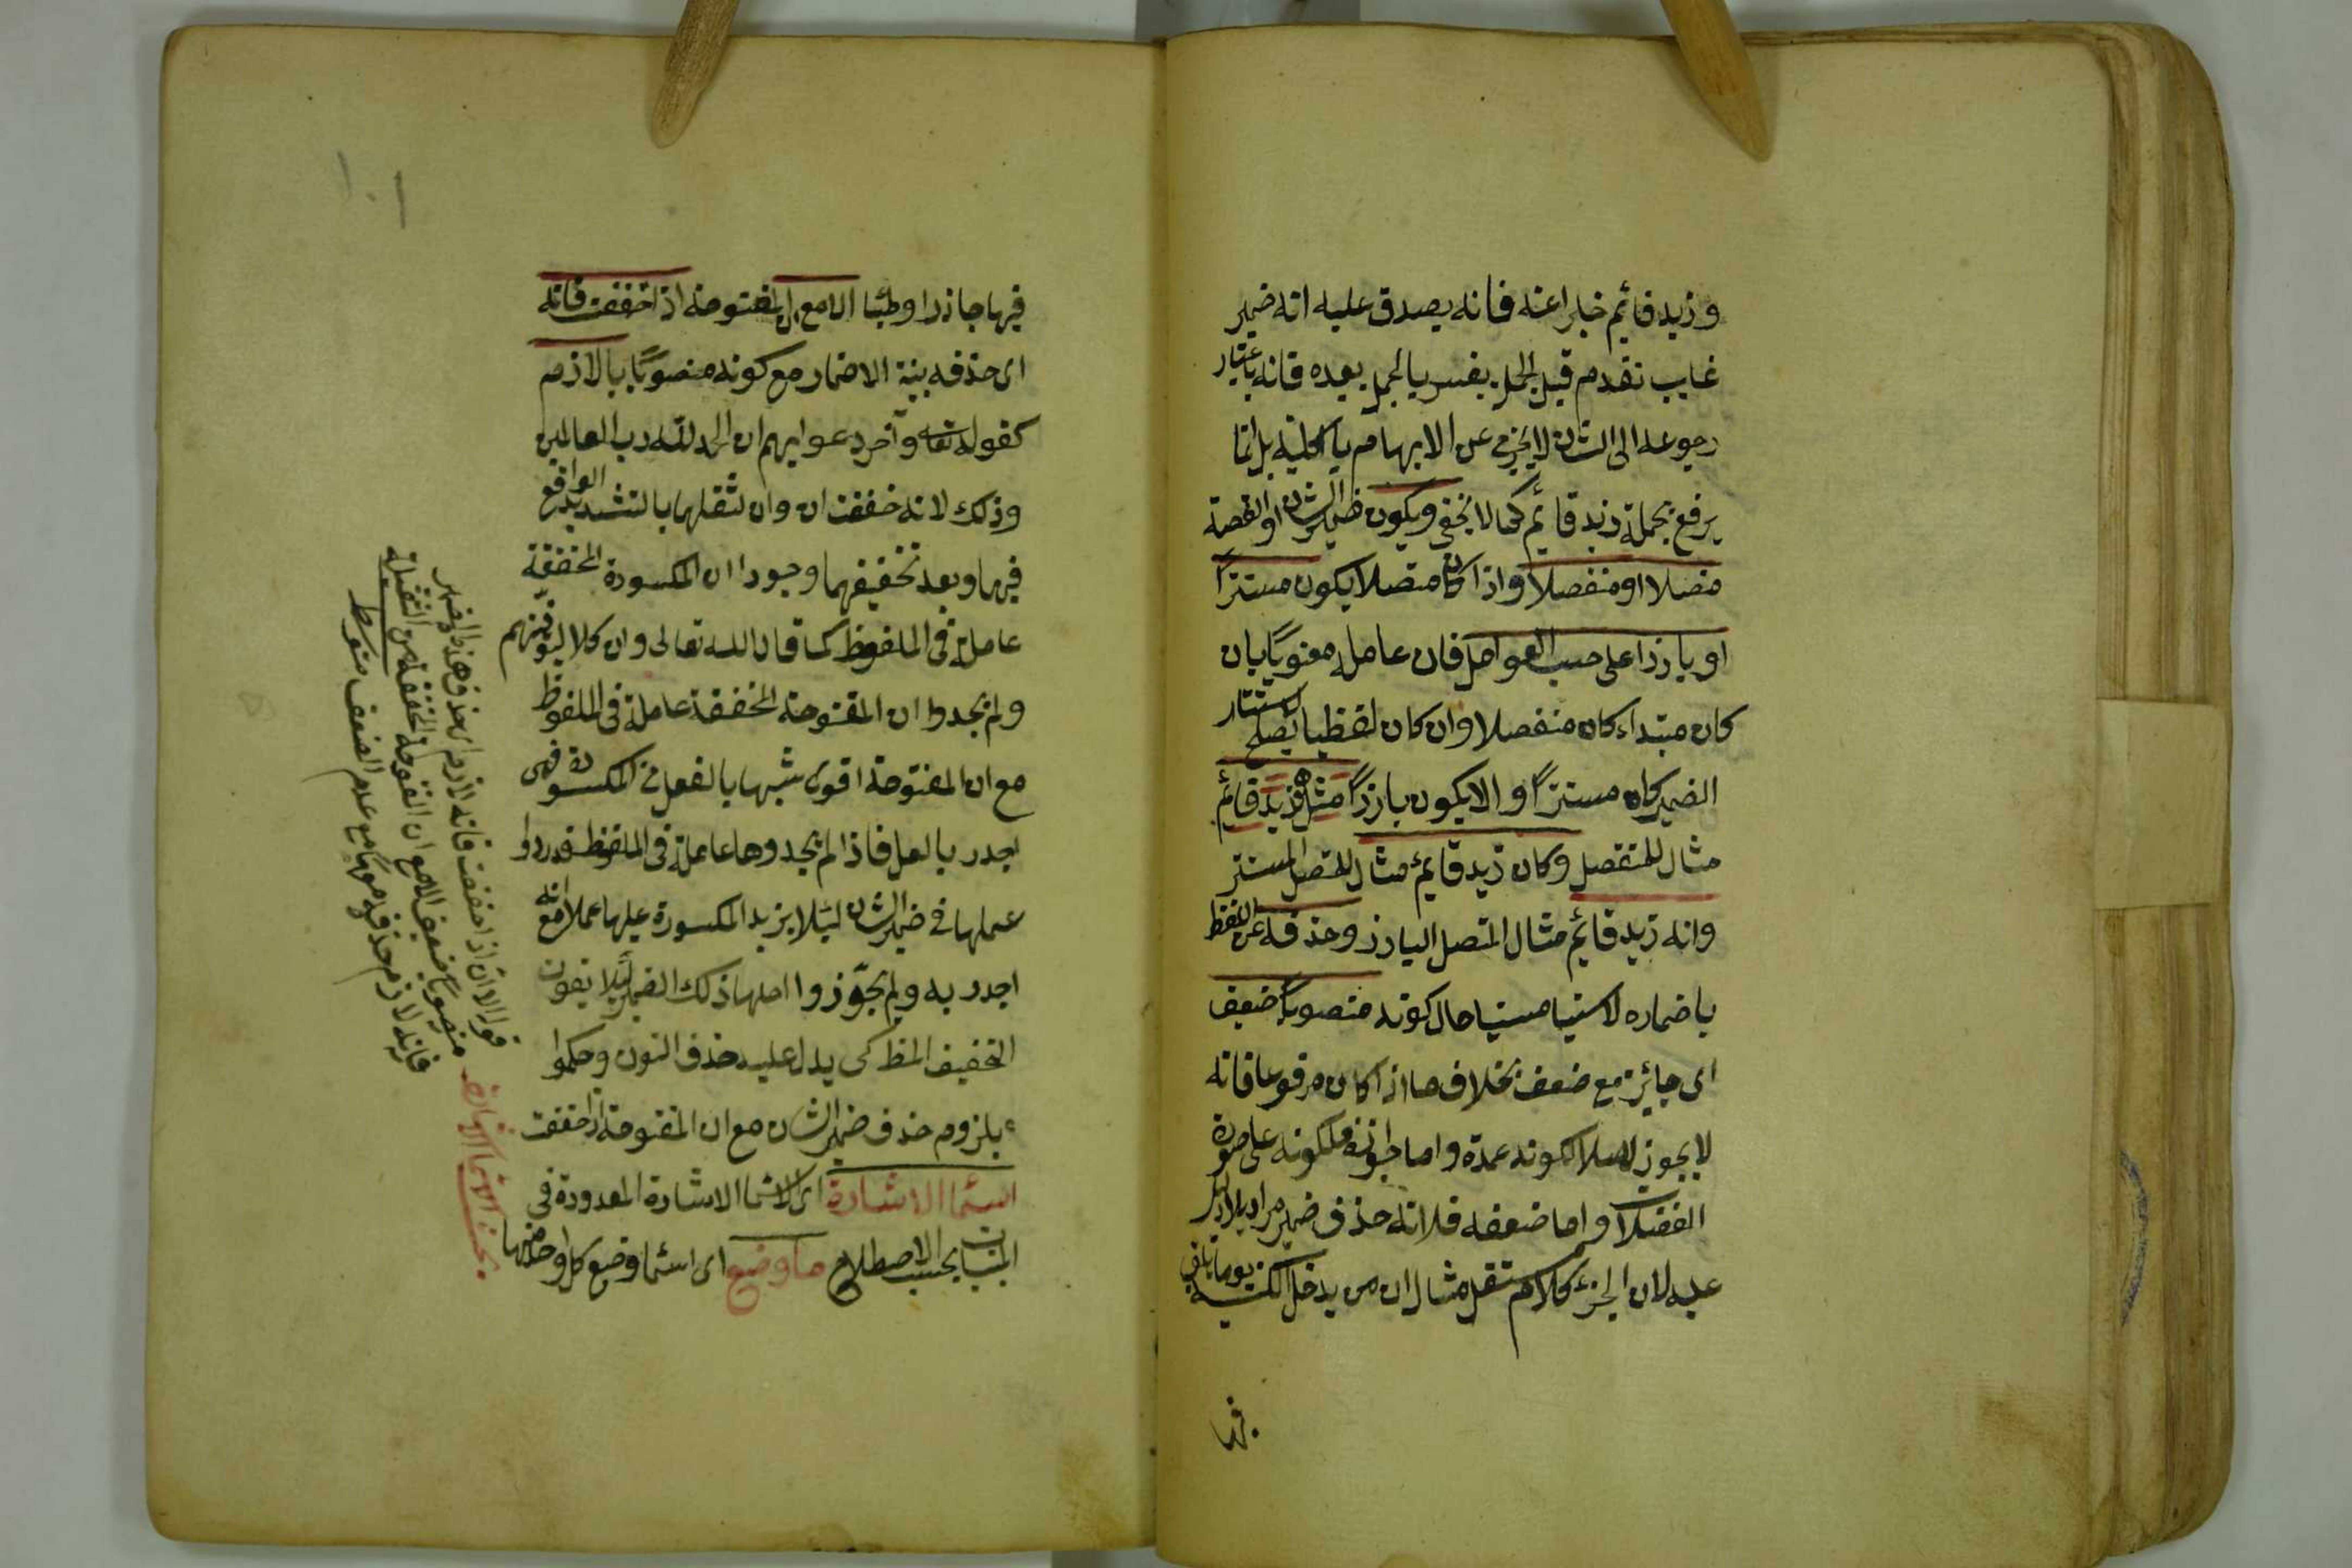 وزيد قائم خبرا عنه فانه يصدق عليه انه ضمير
غايب تقدم قبل الجملة يفسر بالجملة بعده فانه باعتبار
رجوعه الى الشان لا يخرج عن الابهام بالكلية بل انما
يرفع بجملة زيد قائم كما لا يخفى ويكون ضمير الشان او القصة
متصلا او منفصلا واذا كان متصلا يكون مستترًا
او بارزا على حسب العوامل فان عامله معنويًا بان
كان مبتداء كان منفصلا وان كان لفظيا يصلح لاستتار
الضمير كان مستترًا والا يكون بارزًا مثل هو زيد قائم
مثال للمنفصل وكان زيد قايم مثال للمتصل المستتر
وانه زيد قائم مثال المتصل البارز وحذفه عن اللفظ
باضماره لا نسيا منسيا حال كونه منصوبًا ضعيف
اى جائز مع ضعف بخلاف ما اذا كان مرفوعا فانه
لا يجوز اصلا لكونه عمدة واما جوازه فلكونه على صورة
الفضلات واما ضعفه فلانه حذف ضمير مراد بلا دليل
عليه لان الخبر كلام مستقل مثال ان من يدخل الكنيسة يوما يلق
فيها
١٠١
فيها جاذرا وظبآ الا مع ان المفتوحة اذا خففت فانه
اى حذفه بنية الاضمار مع كونه منصوبًا بالازم
كقوله تعالى وآخر دعواهم ان الحمد لله رب العالمين
وذلك لانه خففت ان وان لثقلها بالتشديد الواقع
فيها وبعد تخفيفهما وجودا ان المكسورة المخففة
عاملة في الملفوظ كما قال الله تعالى وان كلا ليوفينهم
ولم يجدوا ان المفتوحة المخففة عاملة في الملفوظ
مع ان المفتوحة اقوى شبها بالفعل من المكسورة فهى
اجدر بالعمل فاذا لم يجدوها عاملة في الملفوظ قدروا
عملها في ضمير الشان ليئلا يزيد المكسورة عليها عملا مع انه
اجدر به ولم يجوّزوا اظهار ذلك الضمير لئلا يفوت
التخفيف المظ كى يدل عليه حذف النون وحكموا
بلزوم حذف ضمير الشان مع ان المفتوحة اذا خففت
اسما الاشارة اى الاسما الاشارة المعدودة في
المبنيات بحسب الاصطلاح ما وضع اى اسما وضع كل واحد منها
قوله الا ان اذا خففت فانه لازم اى حذف هذا الضمير
منصوبًا ضعيف الا مع ان المفتوحة المخففة من الثقيلة
فانه لازم حذفه معها مع عدم الضعف متوسط
بحث الاسما الاشارة